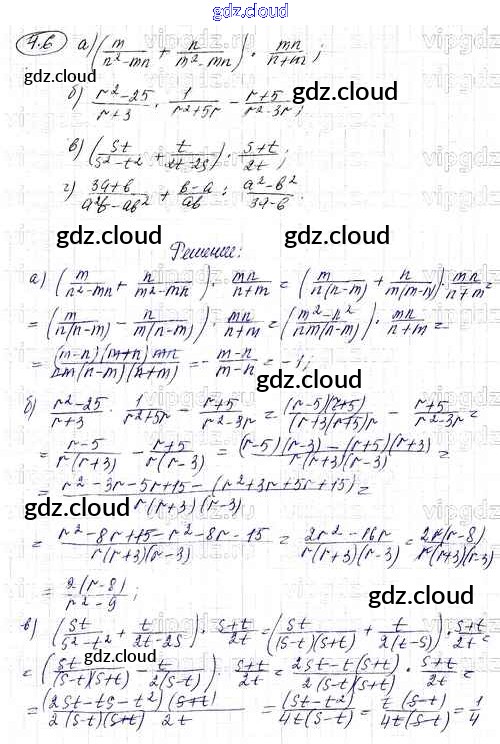 gdz.cloud
4.6 а) (m/(n²-mn) + n/(m²-mn)) · mn/(n+m);
б) (r²-25)/(r+3) · 1/(r²+5r) - (r+5)/(r²-3r);
в) (st/(s²-t²) + t/(2t-2s)) · (s+t)/(2t);
г) (3a+b)/(a²b-ab²) + (b-a)/(ab) : (a²-b²)/(3a-b).
Решение:
а) (m/(n²-mn) + n/(m²-mn)) · mn/(n+m) = (m/(n(n-m)) + n/(m(m-n))) · mn/(n+m) =
= (m/(n(n-m)) - n/(m(n-m))) · mn/(n+m) = ((m²-n²)/(nm(n-m))) · mn/(n+m) =
= (m-n)(m+n)mn/(nm(n-m)(n+m)) = - (m-n)/(m-n) = -1;
б) (r²-25)/(r+3) · 1/(r²+5r) - (r+5)/(r²-3r) = (r-5)(r+5)/((r+3)(r+5)r) - (r+5)/(r²-3r) =
= (r-5)/(r(r+3)) - (r+5)/(r(r-3)) = ((r-5)(r-3)-(r+5)(r+3))/(r(r+3)(r-3)) =
= (r²-3r-5r+15-(r²+3r+5r+15))/(r(r+3)(r-3)) =
= (r²-8r+15-r²-8r-15)/(r(r+3)(r-3)) = (2r²-16r)/(r(r+3)(r-3)) = 2r(r-8)/(r(r+3)(r-3))
= 2(r-8)/(r²-9);
в) (st/(s²-t²) + t/(2t-2s)) · (s+t)/(2t) = (st/((s-t)(s+t)) + t/(2(t-s))) · (s+t)/(2t) =
= (st/((s-t)(s+t)) - t/(2(s-t))) · (s+t)/(2t) = (2st-t(s+t))/(2(s-t)(s+t)) · (s+t)/(2t) =
= (2st-ts-t²)(s+t)/(2(s-t)(s+t) 2t) = (st-t²)/(4t(s-t)) = t(s-t)/(4t(s-t)) = 1/4